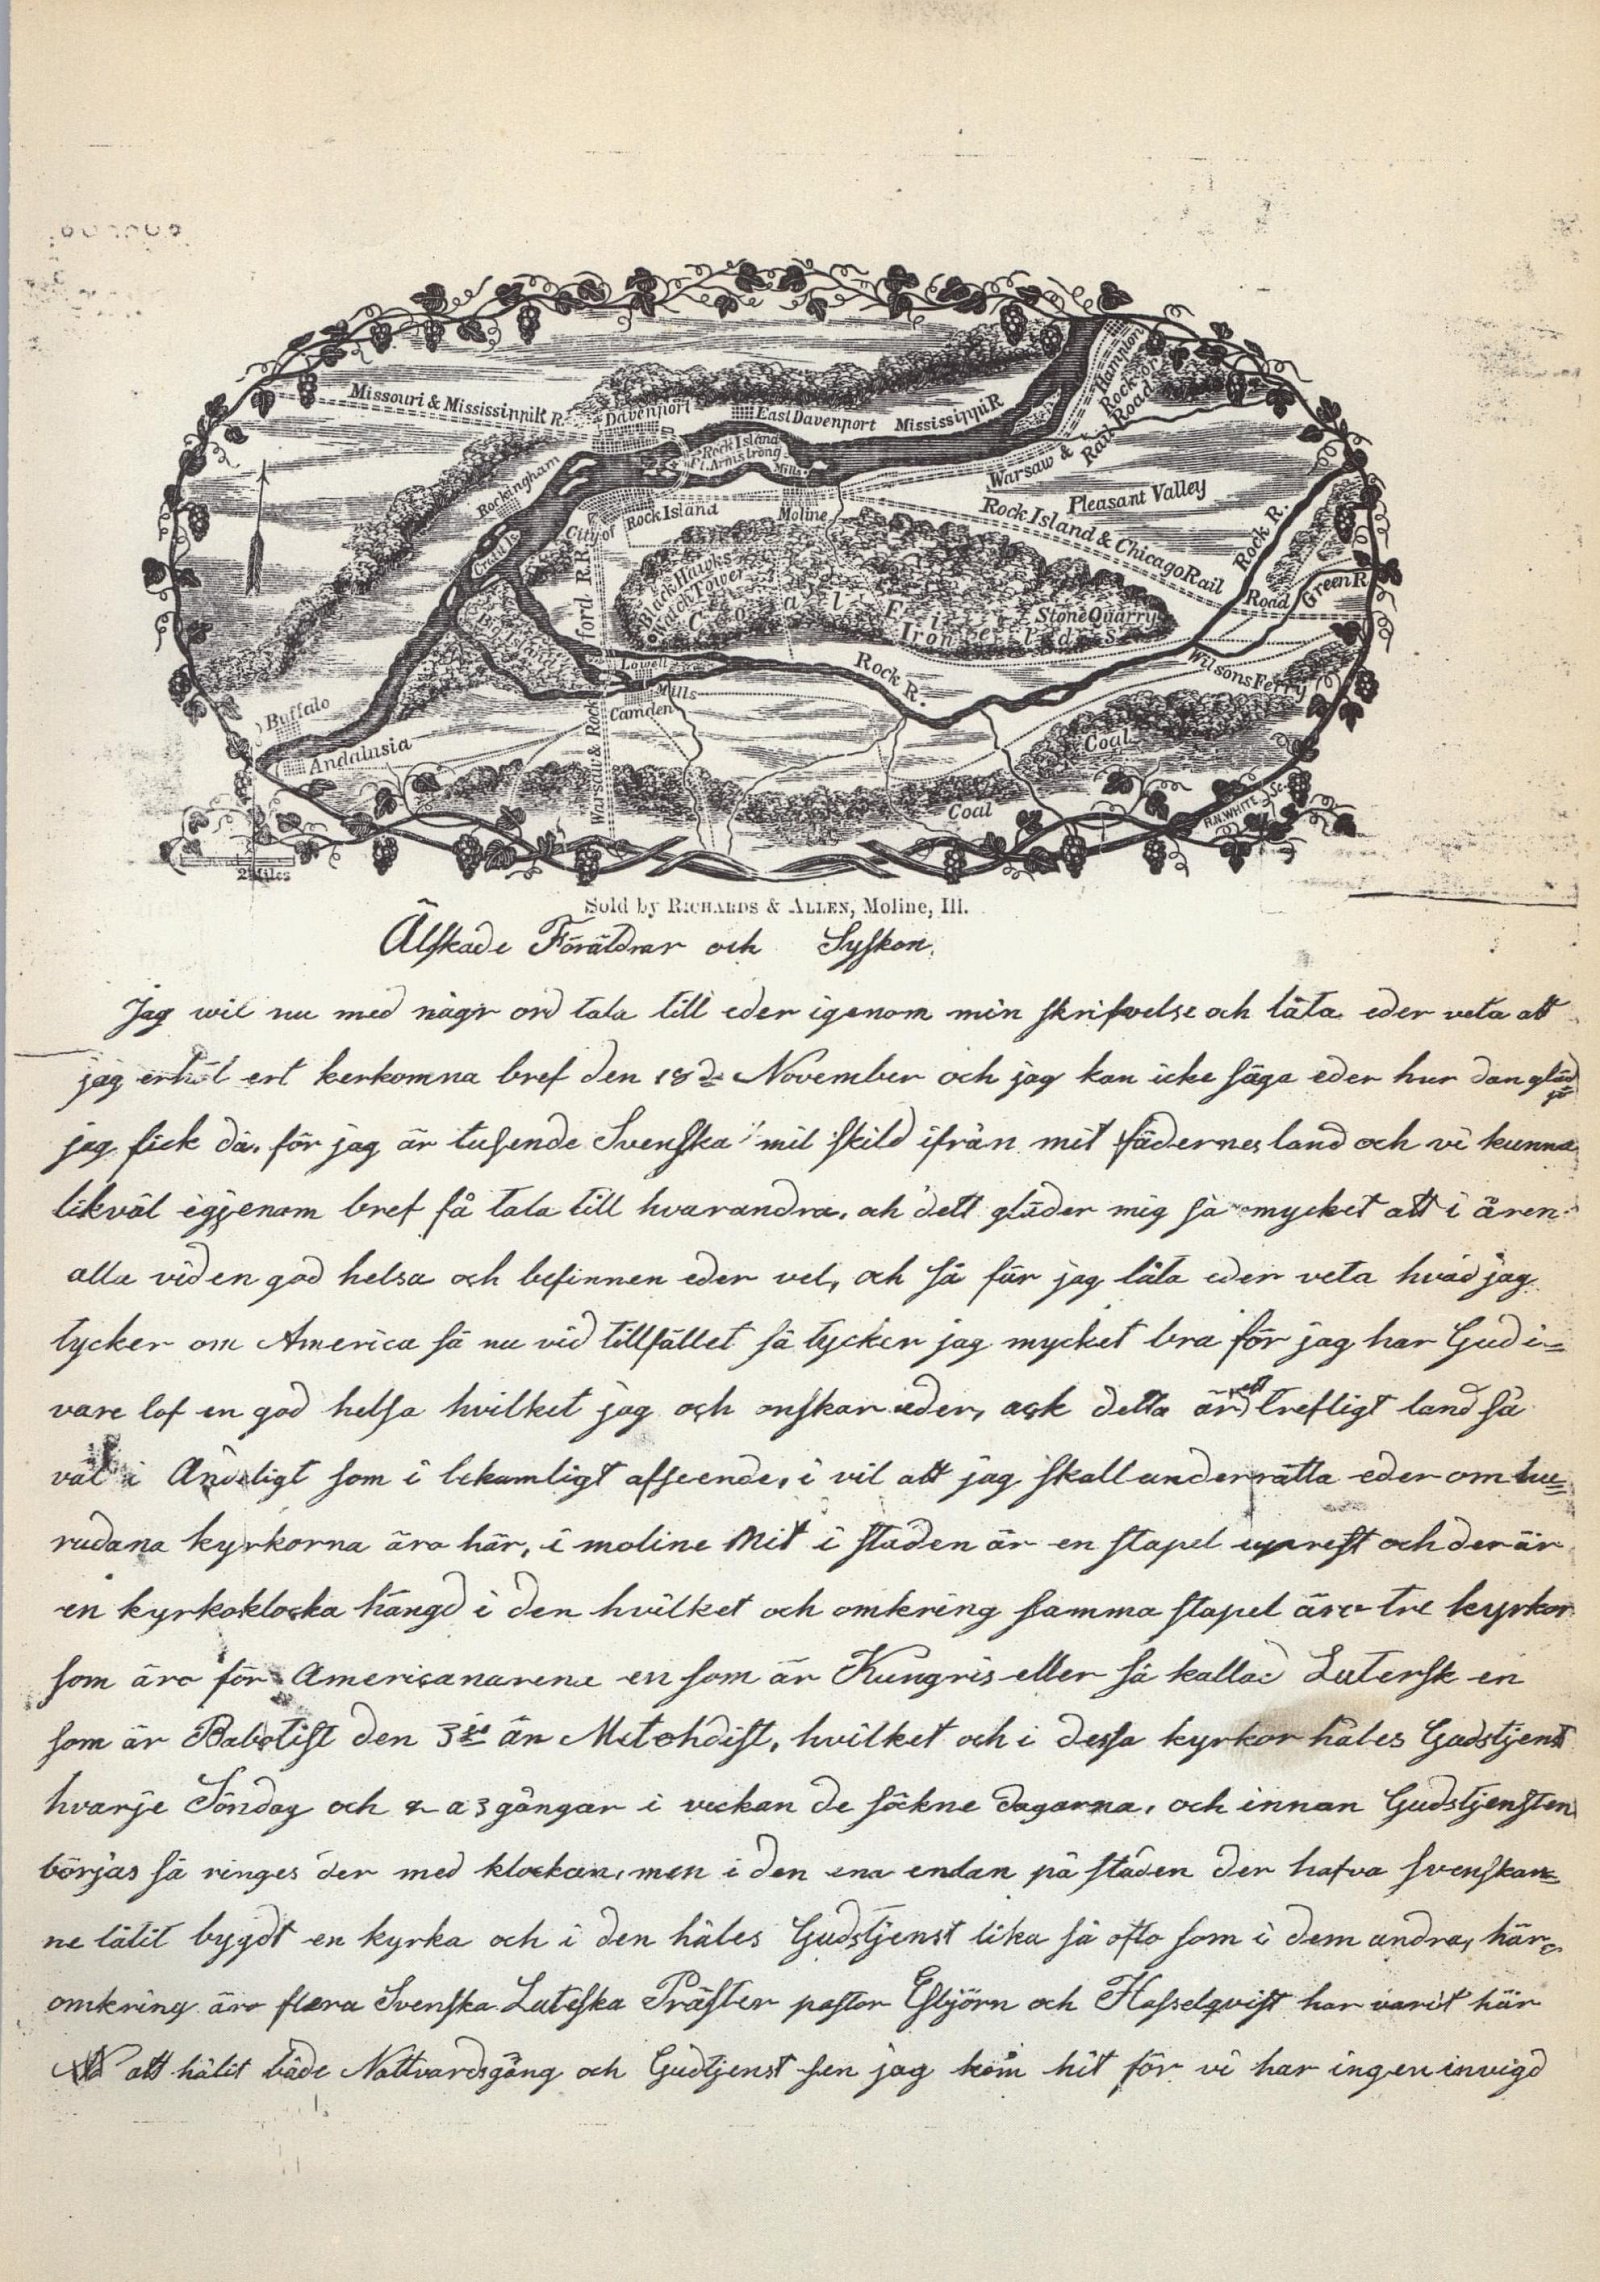 Missouri & Mississippi R R.
Davenport
East Davenport
Mississippi R
Hampton
Rockford
Rail Road
Warsaw &
Rockingham
Rock Island
Ft. Armstrong
Mills
City of
Rock Island
Moline
Pleasant Valley
Rock Island & Chicago Rail Road
Rock R.
Green R.
Credit Is.
Big Island
Black Hawks
Watch Tower
Coal Fields
Iron
Stone Quarry
Lowell
Mills
Camden
Rock R.
Wilsons Ferry
Buffalo
Andalusia
Warsaw & Rockford R.R.
Coal
Coal
R.N. WHITE Sc.
2 Miles
Sold by RICHARDS & ALLEN, Moline, Ill.
Älskade Föräldrar och Syskon.
Jag wil nu med någr ord tala till eder igenom min skrifvelse och låta eder veta att
jag erhöl ert kerkomna bref den 18de November och jag kan icke säga eder hur dan glädje
jag fick då. för jag är tusende Svenska mil skild ifrån mit fädernesland och vi kunna
likväl egjenom bref få tala till hvarandra. och dett gläder mig så mycket att i ären
alla vid en god helsa och befinnen eder vel, och så får jag låta eder veta hvad jag
tycker om America så nu vid tillfället så tycker jag mycket bra för jag har Gud i=
vare lof en god helsa hvilket jag och onskar eder, ock detta är ett trefligt land så
väl i Andeligt som i lekamligt afseende, i vil att jag skall underrätta eder om hu=
rudana kyrkorna äro här, i moline Mit i staden är en stapel uprest och der är
en kyrkoklocka hängd i den hvilket och omkring samma stapel äro tre kyrkor
som äro för Americanarene en som är Kungris eller så kallad Lutersk en
som är Babtist den 3je än Metohdist, hvilket och i dessa kyrkor håles Gudstjenst
hvarje Söndag och 2 a 3 gångar i veckan de söckne dagarna, och innan Gudstjensten
börjas så ringes der med klockan, men i den ena endan på staden der hafva svenskar=
ne låtit bygdt en kyrka och i den håles Gudstjenst lika så ofto som i dem andra, här=
omkring äro flera Svenska Luteska Präster pastor Esbjörn och Hasselqvist har varit här
att hålit både Nattvardsgång och Gudtjenst sen jag kom hit för vi har ingen invigd